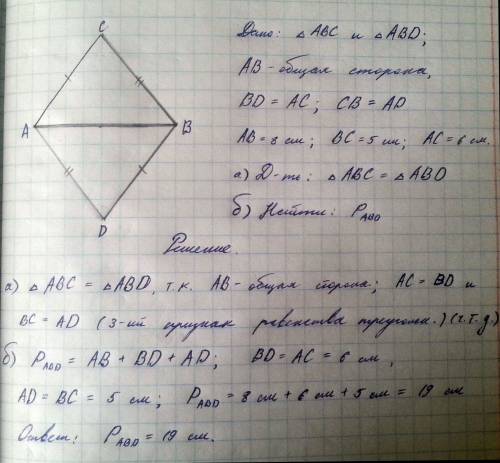 C
A
B
D
Дано: △ABC и △ABD;
AB - общая сторона,
BD = AC; CB = AD
AB = 8 см; BC = 5 см; AC = 6 см.
а) Д-ть: △ABC = △ABD
б) Найти: P_ABD
Решение.
а) △ABC = △ABD, т.к. AB - общая сторона; AC = BD и
BC = AD (3-ий признак равенства треугольн.) (ч.т.д)
б) P_ABD = AB + BD + AD; BD = AC = 6 см,
AD = BC = 5 см; P_ABD = 8 см + 6 см + 5 см = 19 см
Ответ: P_ABD = 19 см.